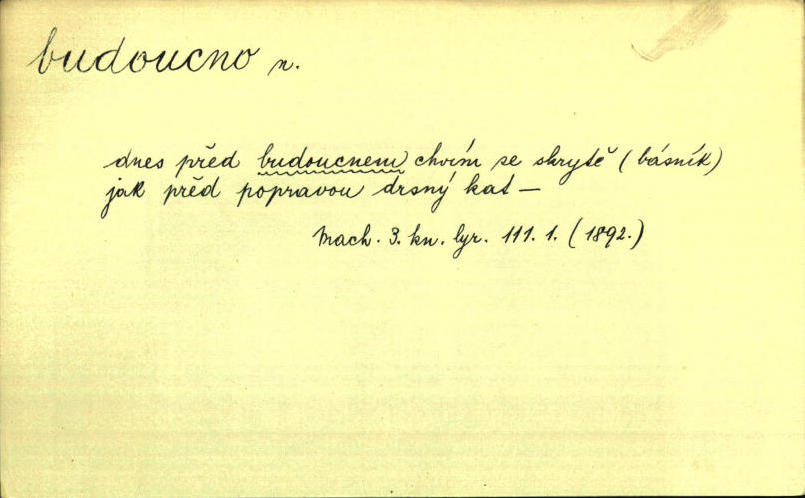 budoucno n.
dnes před budoucnem chvím se skrytě (básník)
jak před popravou drsný kat —
Mach. 3. kn. lyr. 111. 1. (1892.)